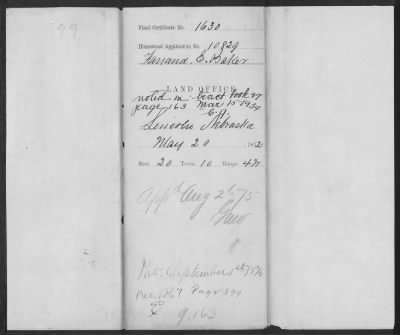 Final Certificate No. 1630
Homestead Application No. 10829
Farrand E. Baker
LAND OFFICE
noted in tract book 47
page 163 Mar 15 1934
Lincoln Nebraska
May 20 187
Sect. 20 Town. 10 Range 4 W.
App'd Aug 26 75
Pat. September 1st 1875
Rec. Vol. 7 Page 399
9.163